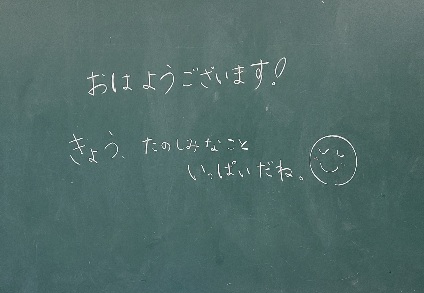 おはようございます!
きょう、たのしみなこと
いっぱいだね。